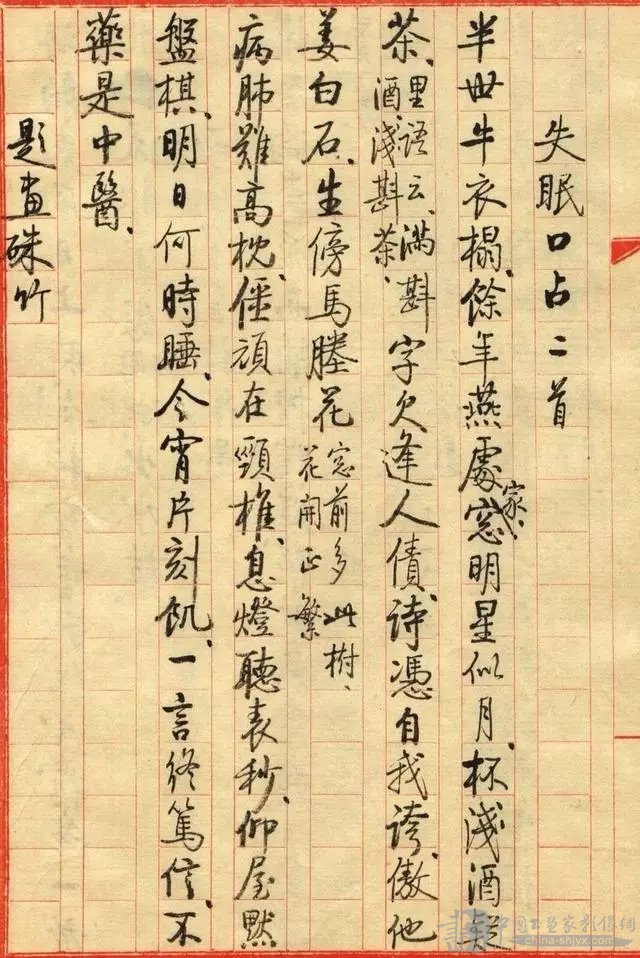 失眠口占二首
半世牛衣榻、餘年燕處家、窓明星似月、杯淺酒疑
茶、里語云、滿斟酒、淺斟茶、字欠逢人債、詩憑自我誇、傲他
姜白石、生傍馬塍花窓前多此樹、花開正繁
病肺難高枕、僵頑在頸椎、息燈聽表秒、仰屋默
盤棋、明日何時睡、今宵片刻飢、一言終篤信、不
藥是中醫、
題畫硃竹
中国书画家影像网
china-shjyx.com